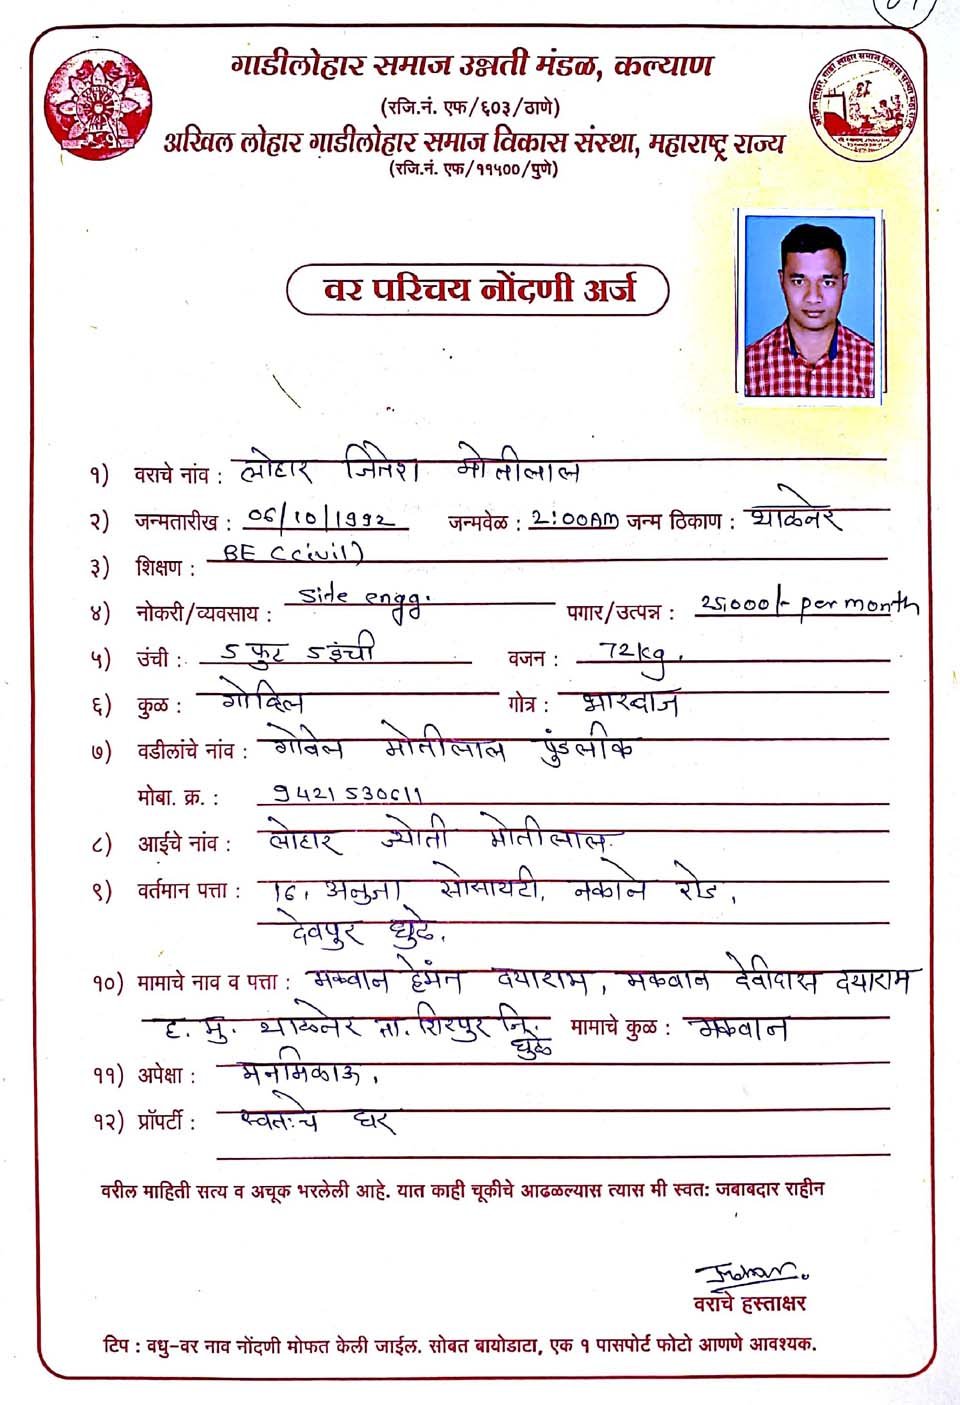 गाडीलोहार समाज उन्नती मंडळ, कल्याण
(रजि.नं. एफ/६०३/ठाणे)
अखिल लोहार गाडीलोहार समाज विकास संस्था, महाराष्ट्र राज्य
(रजि.नं. एफ/११५००/पुणे)
वर परिचय नोंदणी अर्ज
१) वराचे नांव : लोहार जितेश मोतीलाल
२) जन्मतारीख : 06/10/1992 जन्मवेळ : 2:00AM जन्म ठिकाण : थाळनेर
३) शिक्षण : BE (civil)
४) नोकरी/व्यवसाय : Site engg. पगार/उत्पन्न : 25,000/- per month
५) उंची : 5 फुट 5 इंची वजन : 72kg.
६) कुळ : गोव्हिल गोत्र : भारद्वाज
७) वडीलांचे नांव : गोवेल मोतीलाल पुंडलीक
मोबा. क्र. : 9421530611
८) आईचे नांव : लोहार ज्योती मोतीलाल
९) वर्तमान पत्ता : 16, अनुजा सोसायटी, नकाने रोड,
देवपुर धुळे.
१०) मामाचे नाव व पत्ता : मकवान हेमंत दयाराम, मकवान देवीदास दयाराम
ह. मु. थाळनेर ता. शिरपुर जि. धुळे मामाचे कुळ : मकवान
११) अपेक्षा : मनमिळाऊ.
१२) प्रॉपर्टी : स्वतःचे घर
वरील माहिती सत्य व अचूक भरलेली आहे. यात काही चूकीचे आढळल्यास त्यास मी स्वत: जबाबदार राहीन
वराचे हस्ताक्षर
टिप : वधु-वर नाव नोंदणी मोफत केली जाईल. सोबत बायोडाटा, एक १ पासपोर्ट फोटो आणणे आवश्यक.